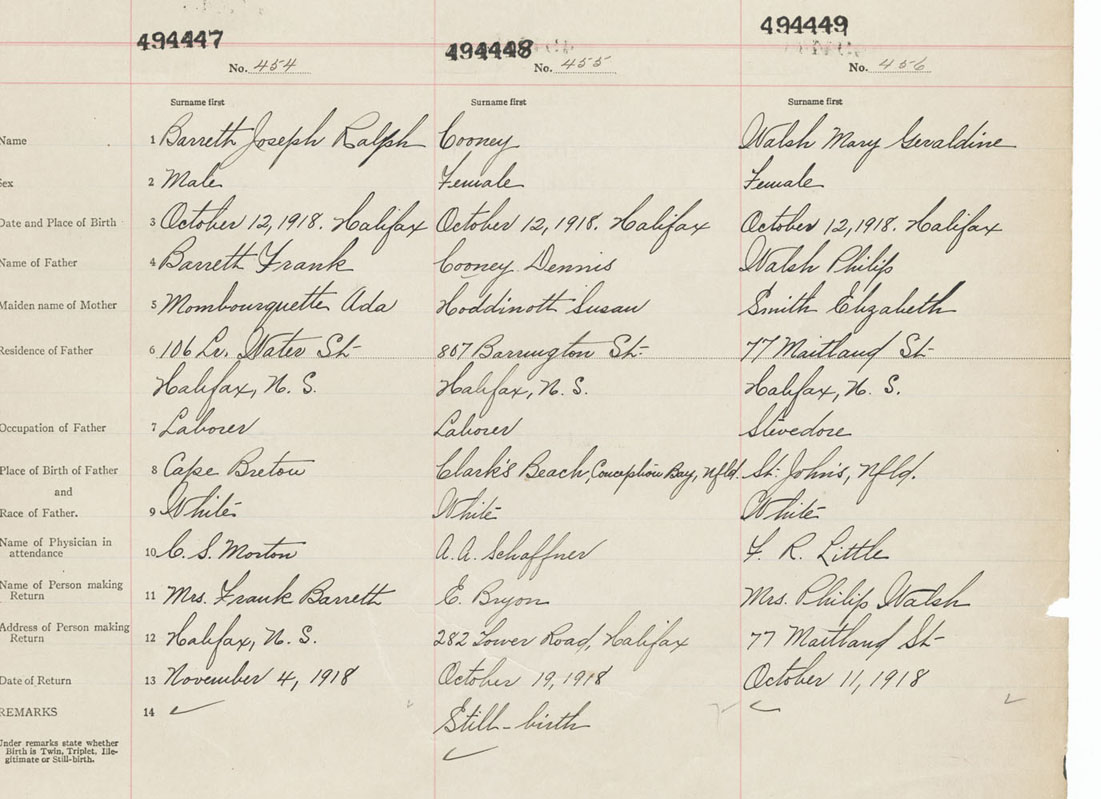 494447 494448 494449
No. 454 No. 455 No. 456
Surname first Surname first Surname first
Name 1 Barrett Joseph Ralph Cooney Walsh Mary Geraldine
Sex 2 Male Female Female
Date and Place of Birth 3 October 12, 1918. Halifax October 12, 1918. Halifax October 12, 1918. Halifax
Name of Father 4 Barrett Frank Cooney Dennis Walsh Philip
Maiden name of Mother 5 Mombourquette Ada Hoddinott Susan Smith Elizabeth
Residence of Father 6 106 Lr. Water St. 807 Barrington St. 77 Maitland St.
Halifax, N. S. Halifax, N. S. Halifax, N. S.
Occupation of Father 7 Laborer Laborer Stevedore
Place of Birth of Father 8 Cape Breton Clark's Beach, Conception Bay, Nfld. St. John's, Nfld.
and
Race of Father. 9 White White White
Name of Physician in
attendance 10 C. S. Morton A. A. Schaffner F. R. Little
Name of Person making
Return 11 Mrs. Frank Barrett E. Bryon Mrs. Philip Walsh
Address of Person making
Return 12 Halifax, N. S. 282 Tower Road, Halifax 77 Maitland St.
Date of Return 13 November 4, 1918 October 19, 1918 October 11, 1918
REMARKS 14
Still-birth
Under remarks state whether
Birth is Twin, Triplet, Ille-
gitimate or Still-birth.